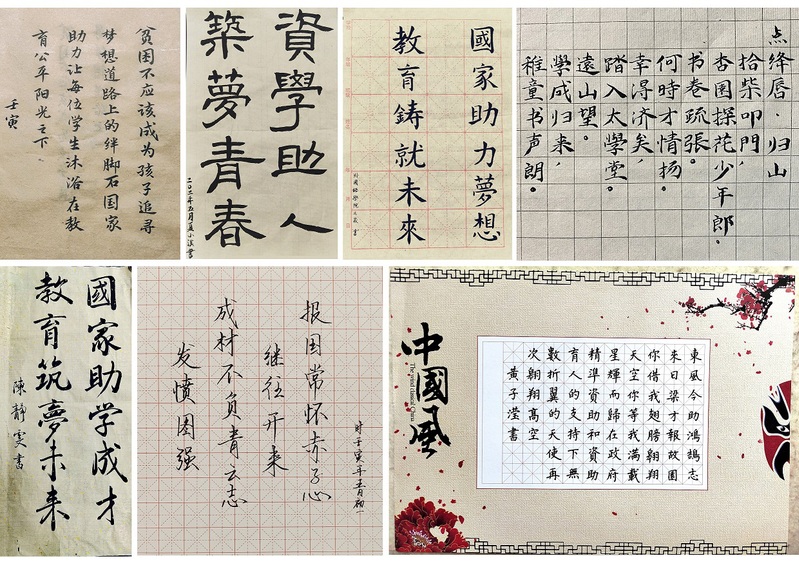 贫困不应该成为孩子追寻
梦想道路上的绊脚石国家
助力让每位学生沐浴在教
育公平阳光之下、
壬寅
資學助人
築夢青春
國家助力夢想
教育鑄就未來
点绛唇·归山
拾柴叩門，
杏園探花少年郎。
书卷疏張。
何時才情扬。
幸得济矣，
踏入太學堂。
遠山望。
學成归来，
稚童书声朗。
國家助学成才
教育筑夢未来
陳靜雯書
时壬寅年五月初一
报国常怀赤子心
继往开来
成材不负青云志
发愤图强
中國風
The great classical China
東風今助鴻鵠志
來日梁才报故園
你借我翅膀翱翔
天空你等我满載
星輝而歸在政府
精準資助和資助
育人的支持下無
數折翼的天使再
次翱翔高空
黄子滢書